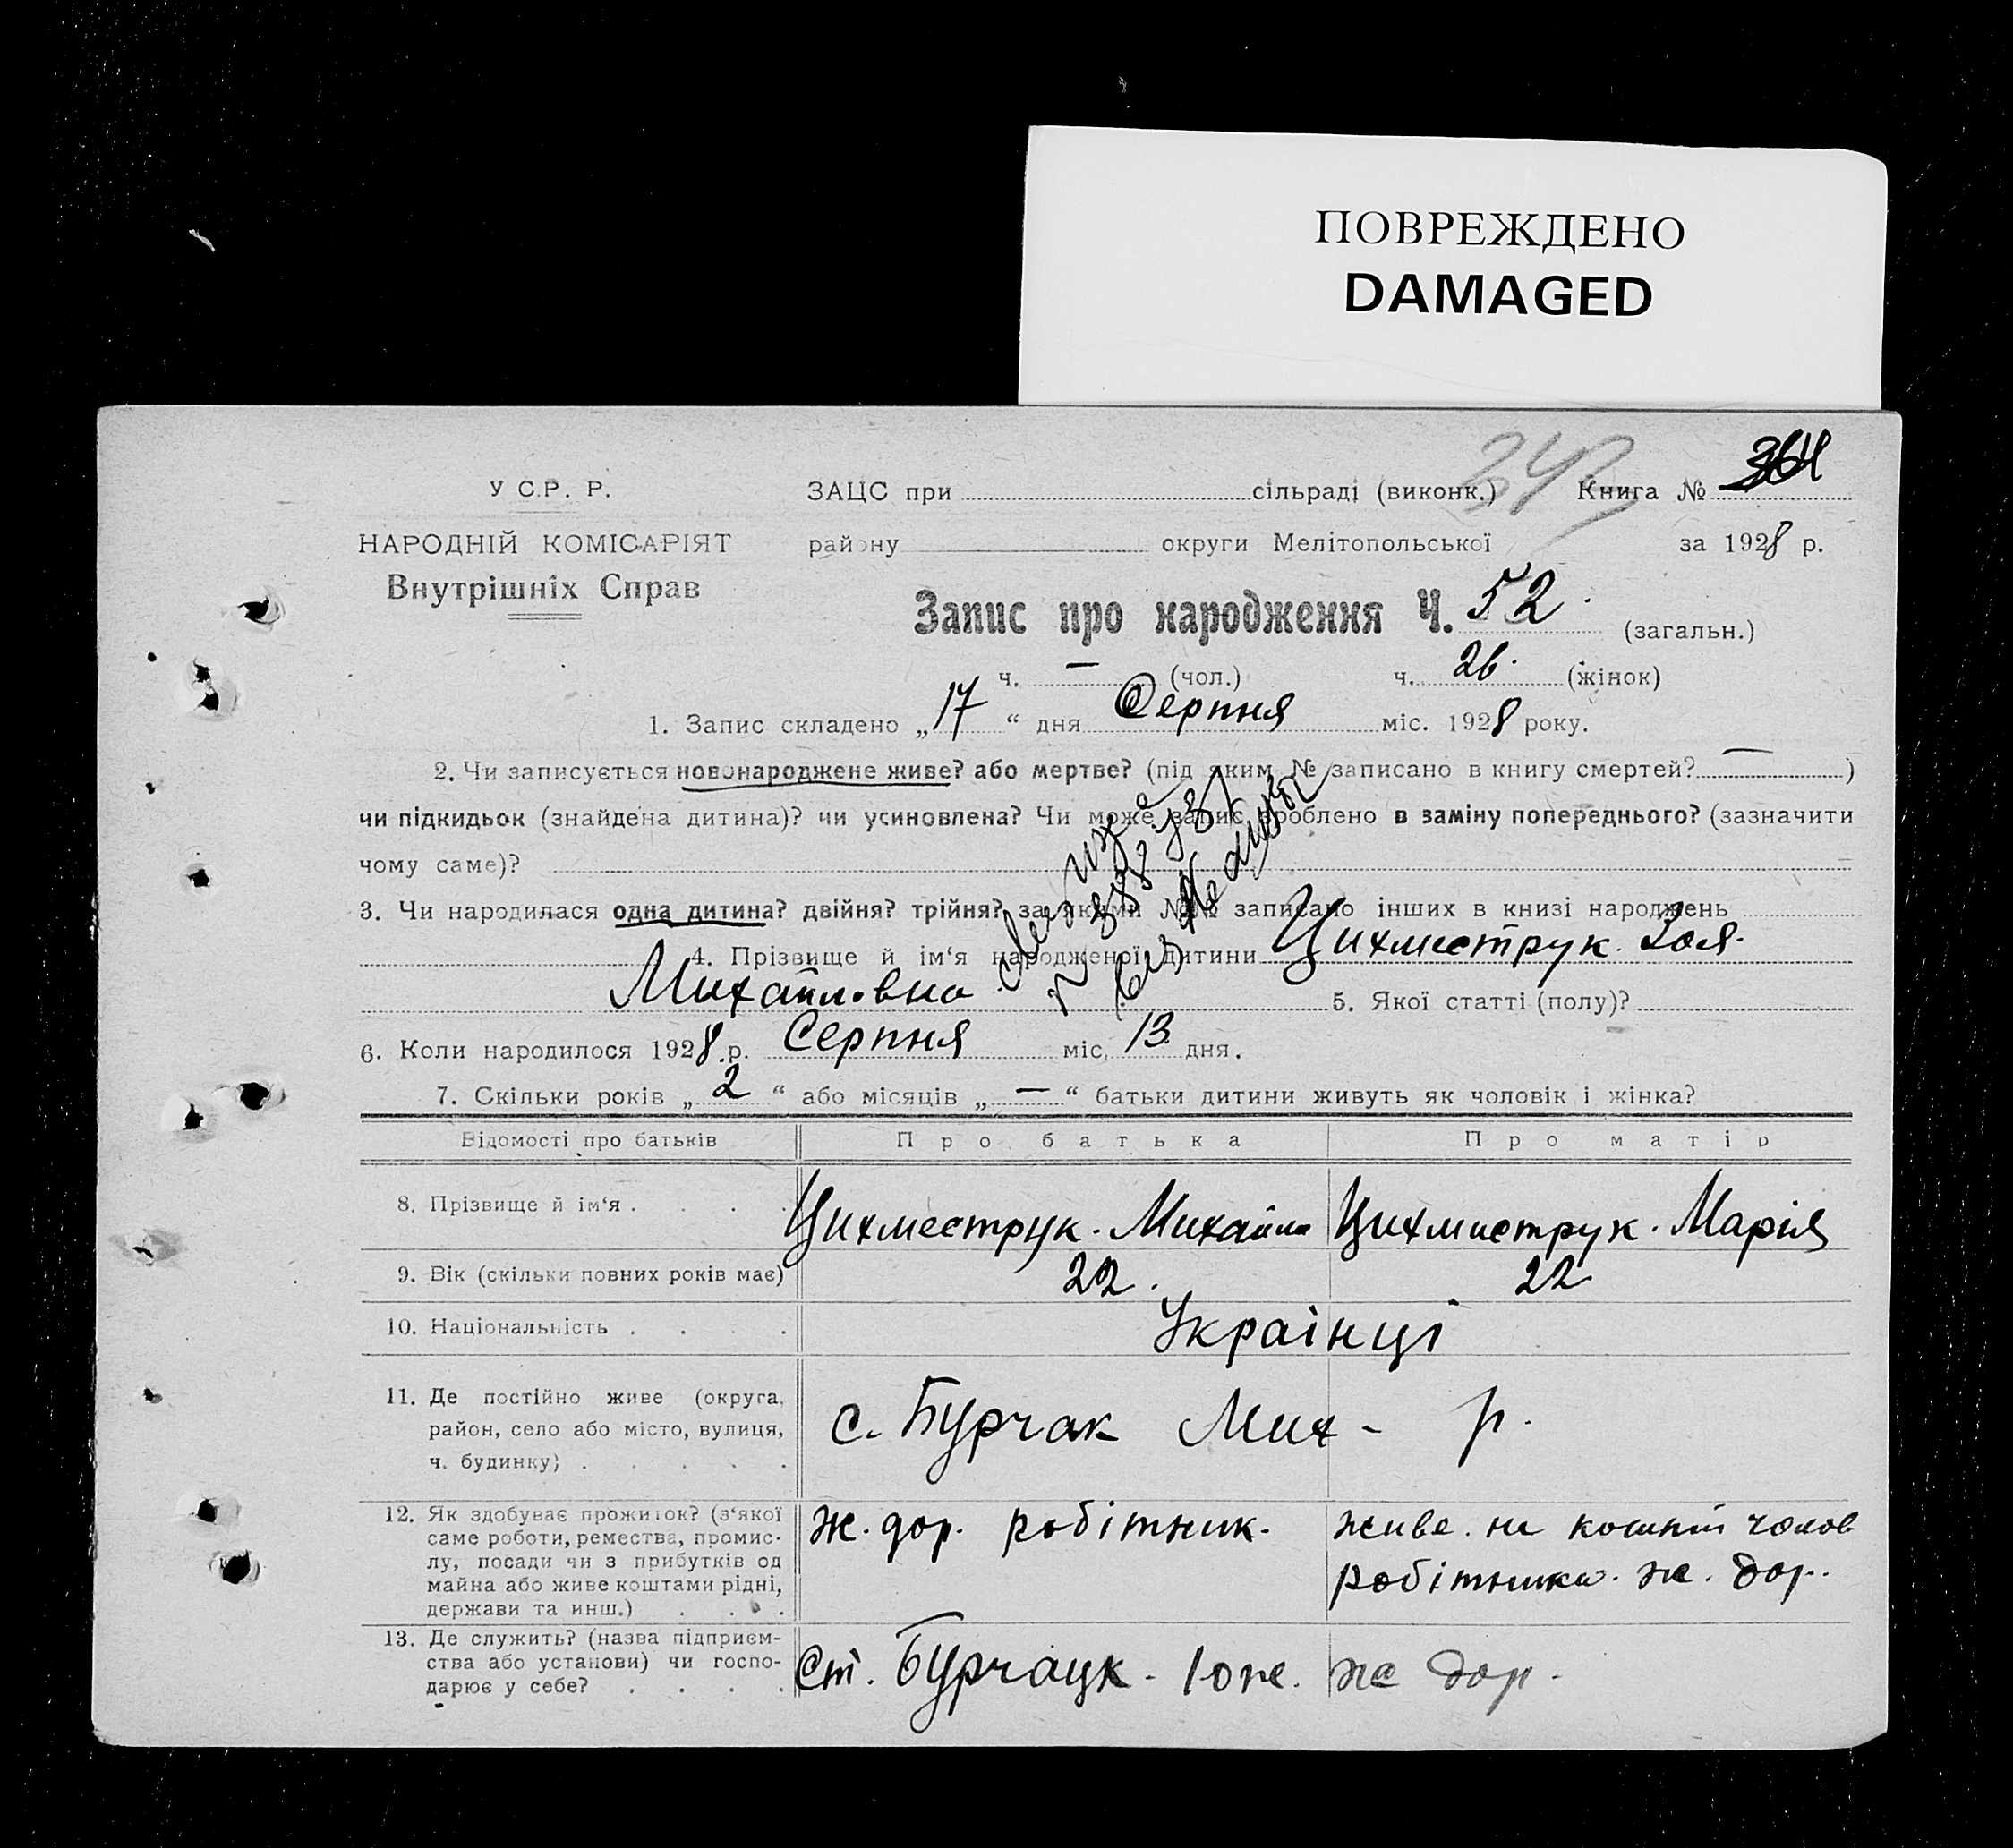 ПОВРЕЖДЕНО
DAMAGED
У С.Р. Р.
НАРОДНІЙ КОМІСАРІЯТ
Внутрішніх Справ
ЗАЦС при сільраді (виконк.) Книга № 364
району округи Мелітопольської за 1928 р.
Запис про народження Ч. 52. (загальн.)
ч. — (чол.) ч. 26. (жінок)
1. Запис складено „17“ дня Серпня міс. 1928 року.
2. Чи записується новонароджене живе? або мертве? (під яким № записано в книгу смертей? — )
чи підкидьок (знайдена дитина)? чи усиновлена? Чи може запис зроблено в заміну попереднього? (зазначити
чому саме)?
3. Чи народилася одна дитина? двійня? трійня? за якими №№ записано інших в книзі народжень
4. Прізвище й ім‘я народженої дитини Цихместрук. Зоя.
Михайловна 5. Якої статті (полу)?
6. Коли народилося 1928 р. Серпня міс. 13 дня.
7. Скільки років „2“ або місяців „—“ батьки дитини живуть як чоловік і жінка?
Відомості про батьків Про батька Про матір
8. Прізвище й ім‘я . . . . Цихместрук. Михайло Цихмиструк. Марія
9. Вік (скільки повних років має) 22. 22
10. Національність . . . Українці
11. Де постійно живе (округа,
район, село або місто, вулиця,
ч. будинку) . . . . .
с. Бурчак Мих - р.
12. Як здобуває прожиток? (з‘якої
саме роботи, ремества, промис-
лу, посади чи з прибутків од
майна або живе коштами рідні,
держави та инш.) . . .
ж. дор. робітник.
живе. на кошти чолов
робітника. ж. дор.
13. Де служить? (назва підприєм-
ства або установи) чи госпо-
дарює у себе? . . . .
Ст. Бурчацк. Юж. же дор.